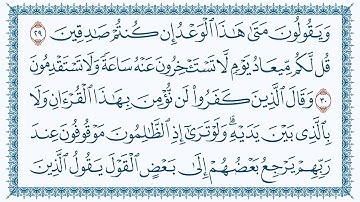 وَيَقُولُونَ مَتَىٰ هَٰذَا ٱلْوَعْدُ إِن كُنتُمْ صَٰدِقِينَ ٢٩
قُل لَّكُم مِّيعَادُ يَوْمٍ لَّا تَسْتَـْٔخِرُونَ عَنْهُ سَاعَةً وَلَا تَسْتَقْدِمُونَ
٣٠ وَقَالَ ٱلَّذِينَ كَفَرُوا۟ لَن نُّؤْمِنَ بِهَٰذَا ٱلْقُرْءَانِ وَلَا
بِٱلَّذِى بَيْنَ يَدَيْهِ ۗ وَلَوْ تَرَىٰٓ إِذِ ٱلظَّٰلِمُونَ مَوْقُوفُونَ عِندَ
رَبِّهِمْ يَرْجِعُ بَعْضُهُمْ إِلَىٰ بَعْضٍ ٱلْقَوْلَ يَقُولُ ٱلَّذِينَ